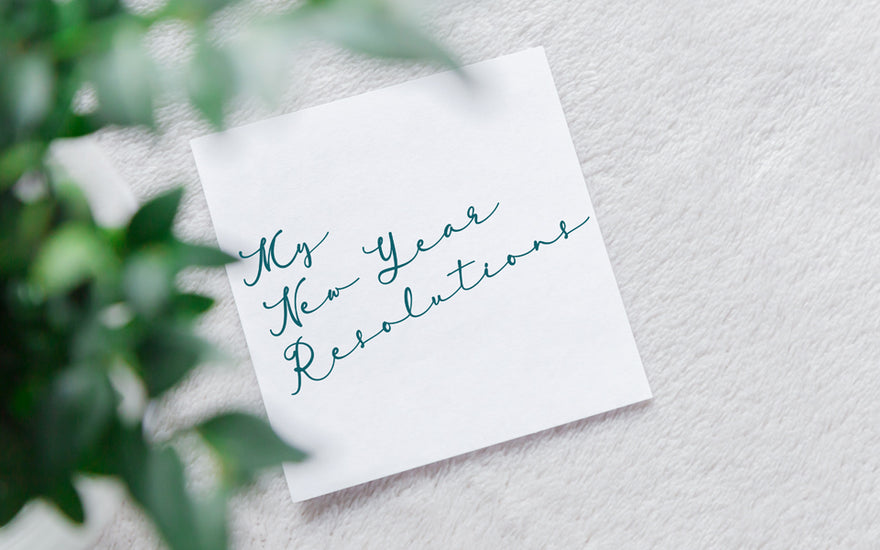 My
New Year
Resolutions